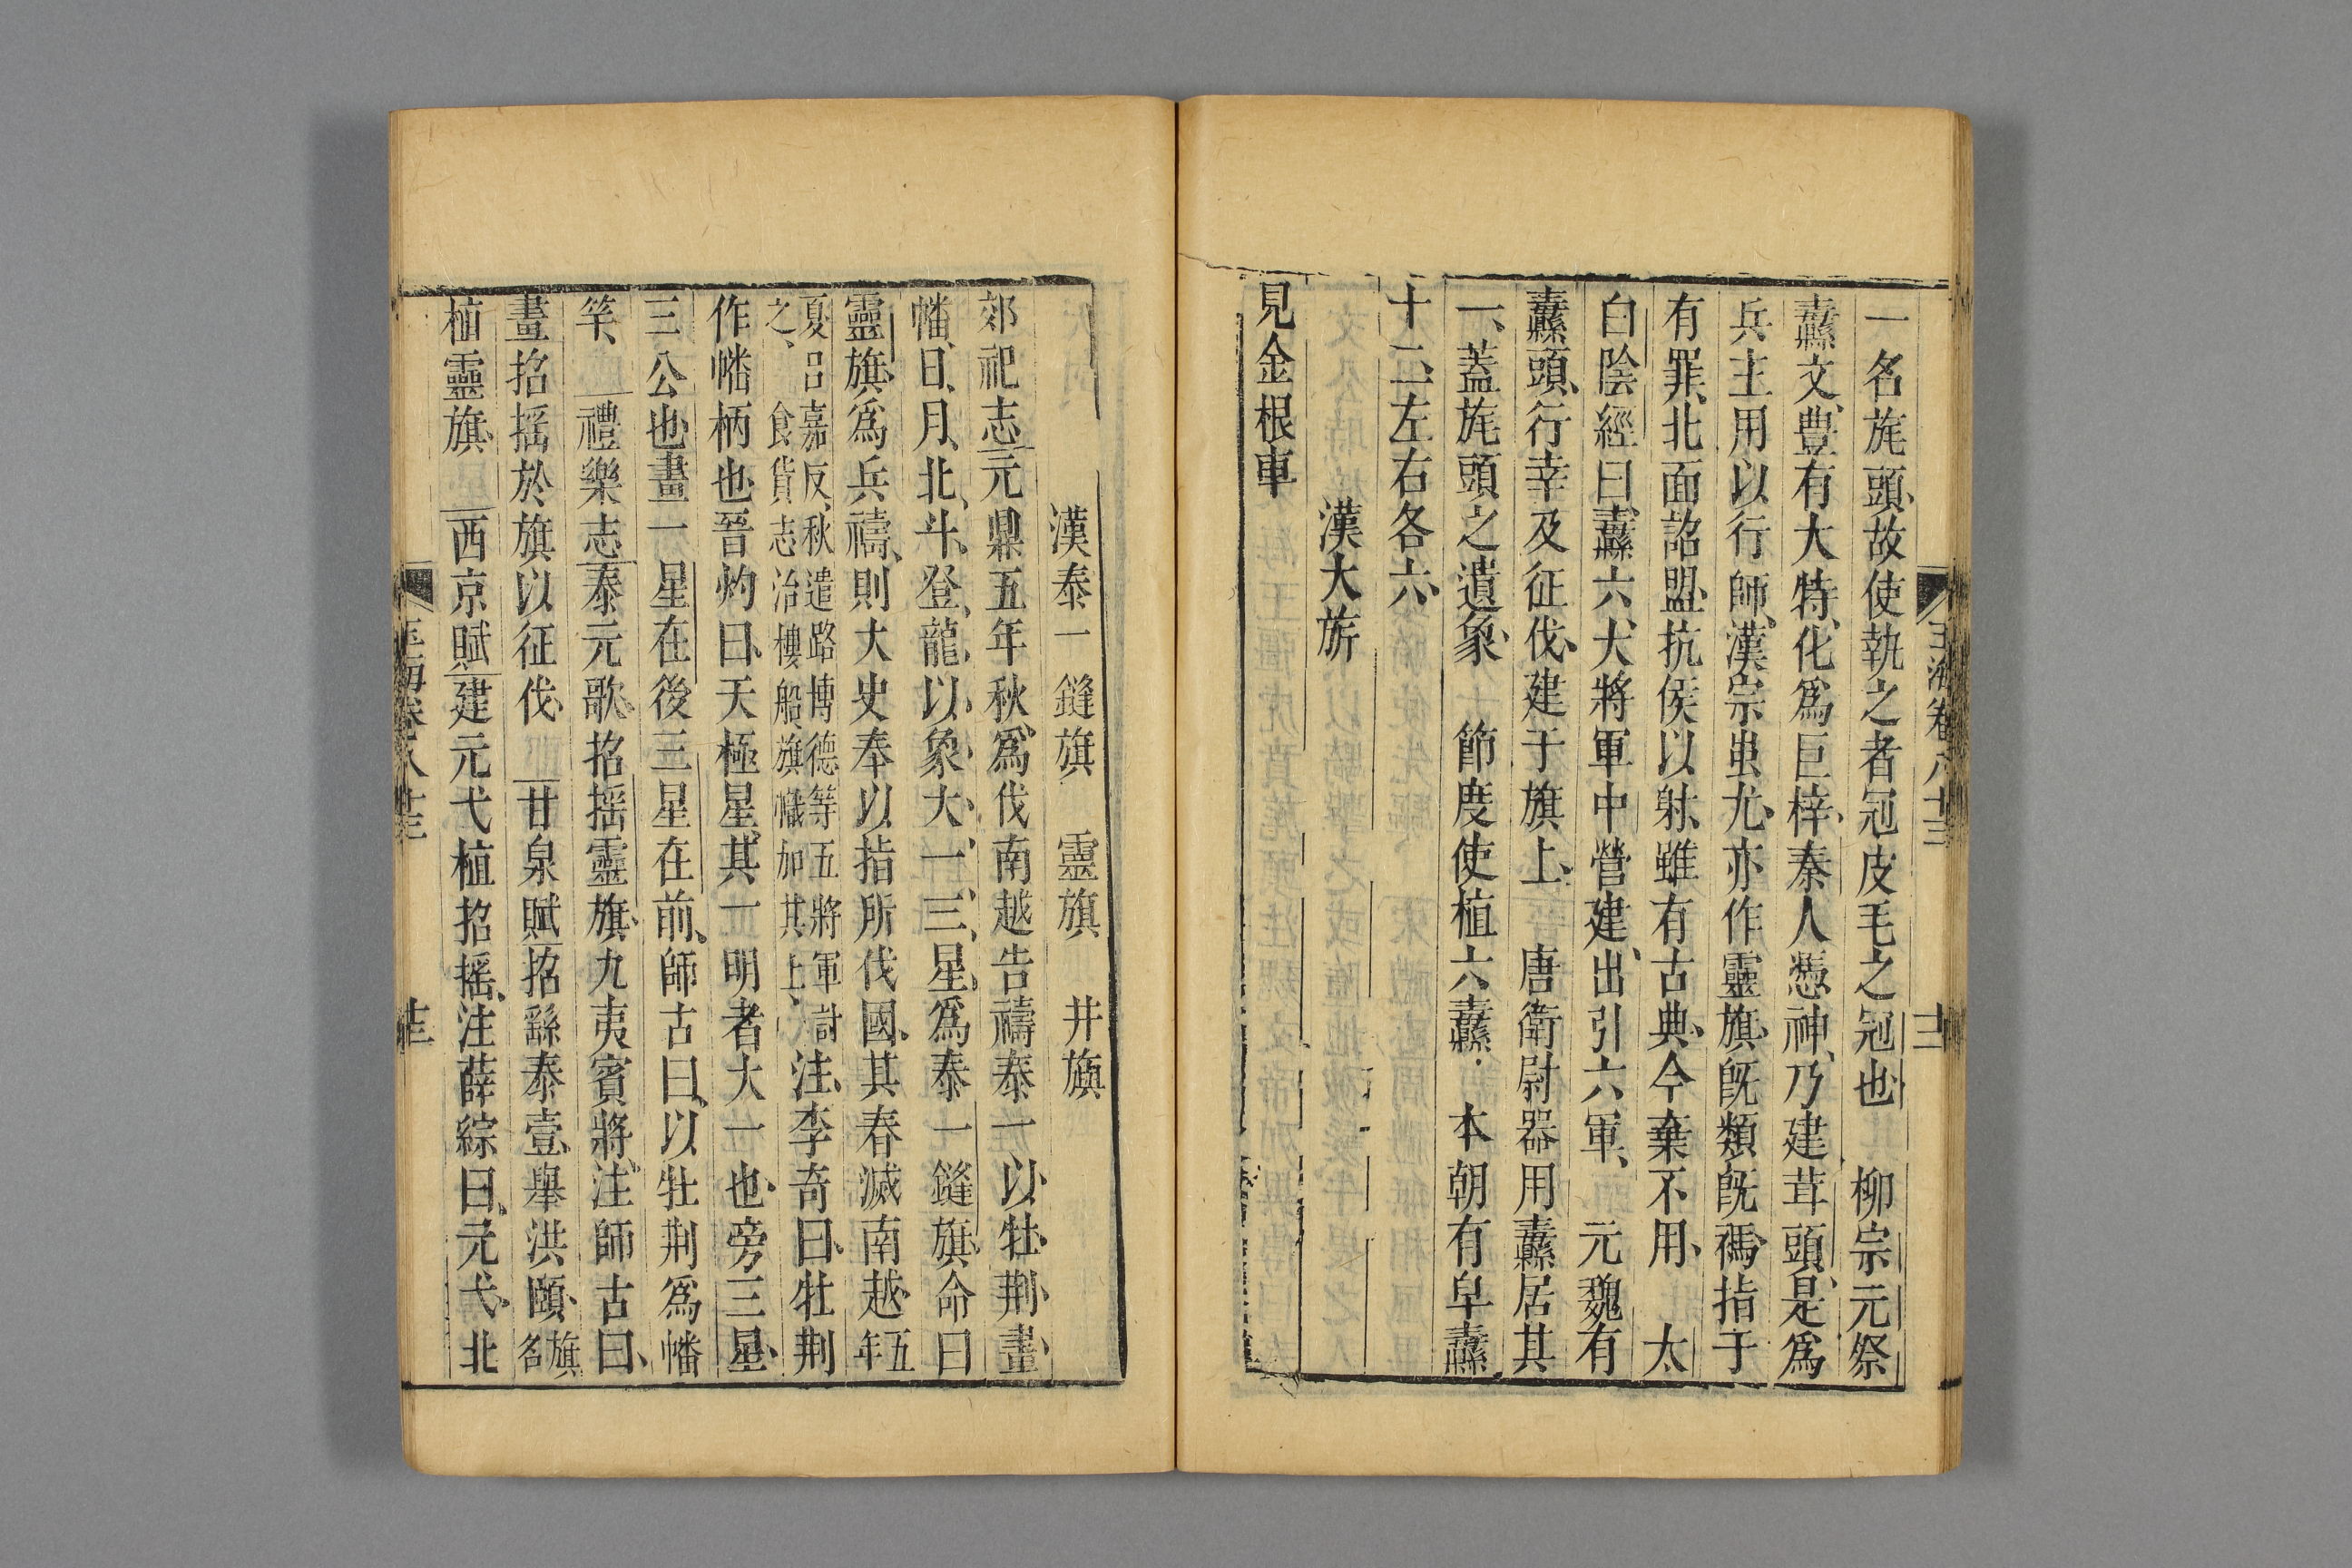 玉海卷八十三
十二
一名旄頭、故使執之者冠皮毛之冠也、柳宗元祭
纛文、豊有大特、化爲巨梓、秦人憑神、乃建茸頭、是爲
兵主用以行師、漢宗蚩尤、亦作靈旗、旣類旣禡、指于
有罪、北面詔盟、抗侯以射、雖有古典、今棄不用、太
白陰經曰、纛六、大將軍中營建、出引六軍、元魏有
纛頭、行幸及征伐、建于旗上、唐衛尉器用纛居其
一、蓋旄頭之遺象、節度使植六纛、本朝有皁纛
十二、左右各六、
漢大旂
見金根車
漢泰一鏠旗 靈旗 井旟
郊祀志元鼎五年秋、爲伐南越告禱泰一、以牡荆、畫
幡、日、月、北、斗、登、龍、以象大、一、三、星、爲泰一鏠旗、命曰
靈旗、爲兵禱、則大史奉以指所伐國、其春滅南越、五年
夏呂嘉反、秋遣路博德等五將軍討
之、食貨志治樓船旗幟加其上、注、李奇曰、牡荆
作幡柄也、晉灼曰、天極星、其一明者大一也、旁三星、
三公也、畫一星在後三星在前、師古曰、以牡荆爲幡
竿、禮樂志泰元歌、招搖靈旗、九夷賓將、注師古曰、
畫招搖於旗以征伐、甘泉賦招繇泰壹、舉洪頤、旗名
植靈旗、西京賦建元弋植招搖、注薛綜曰、元弋、北
玉海卷八十三
十三